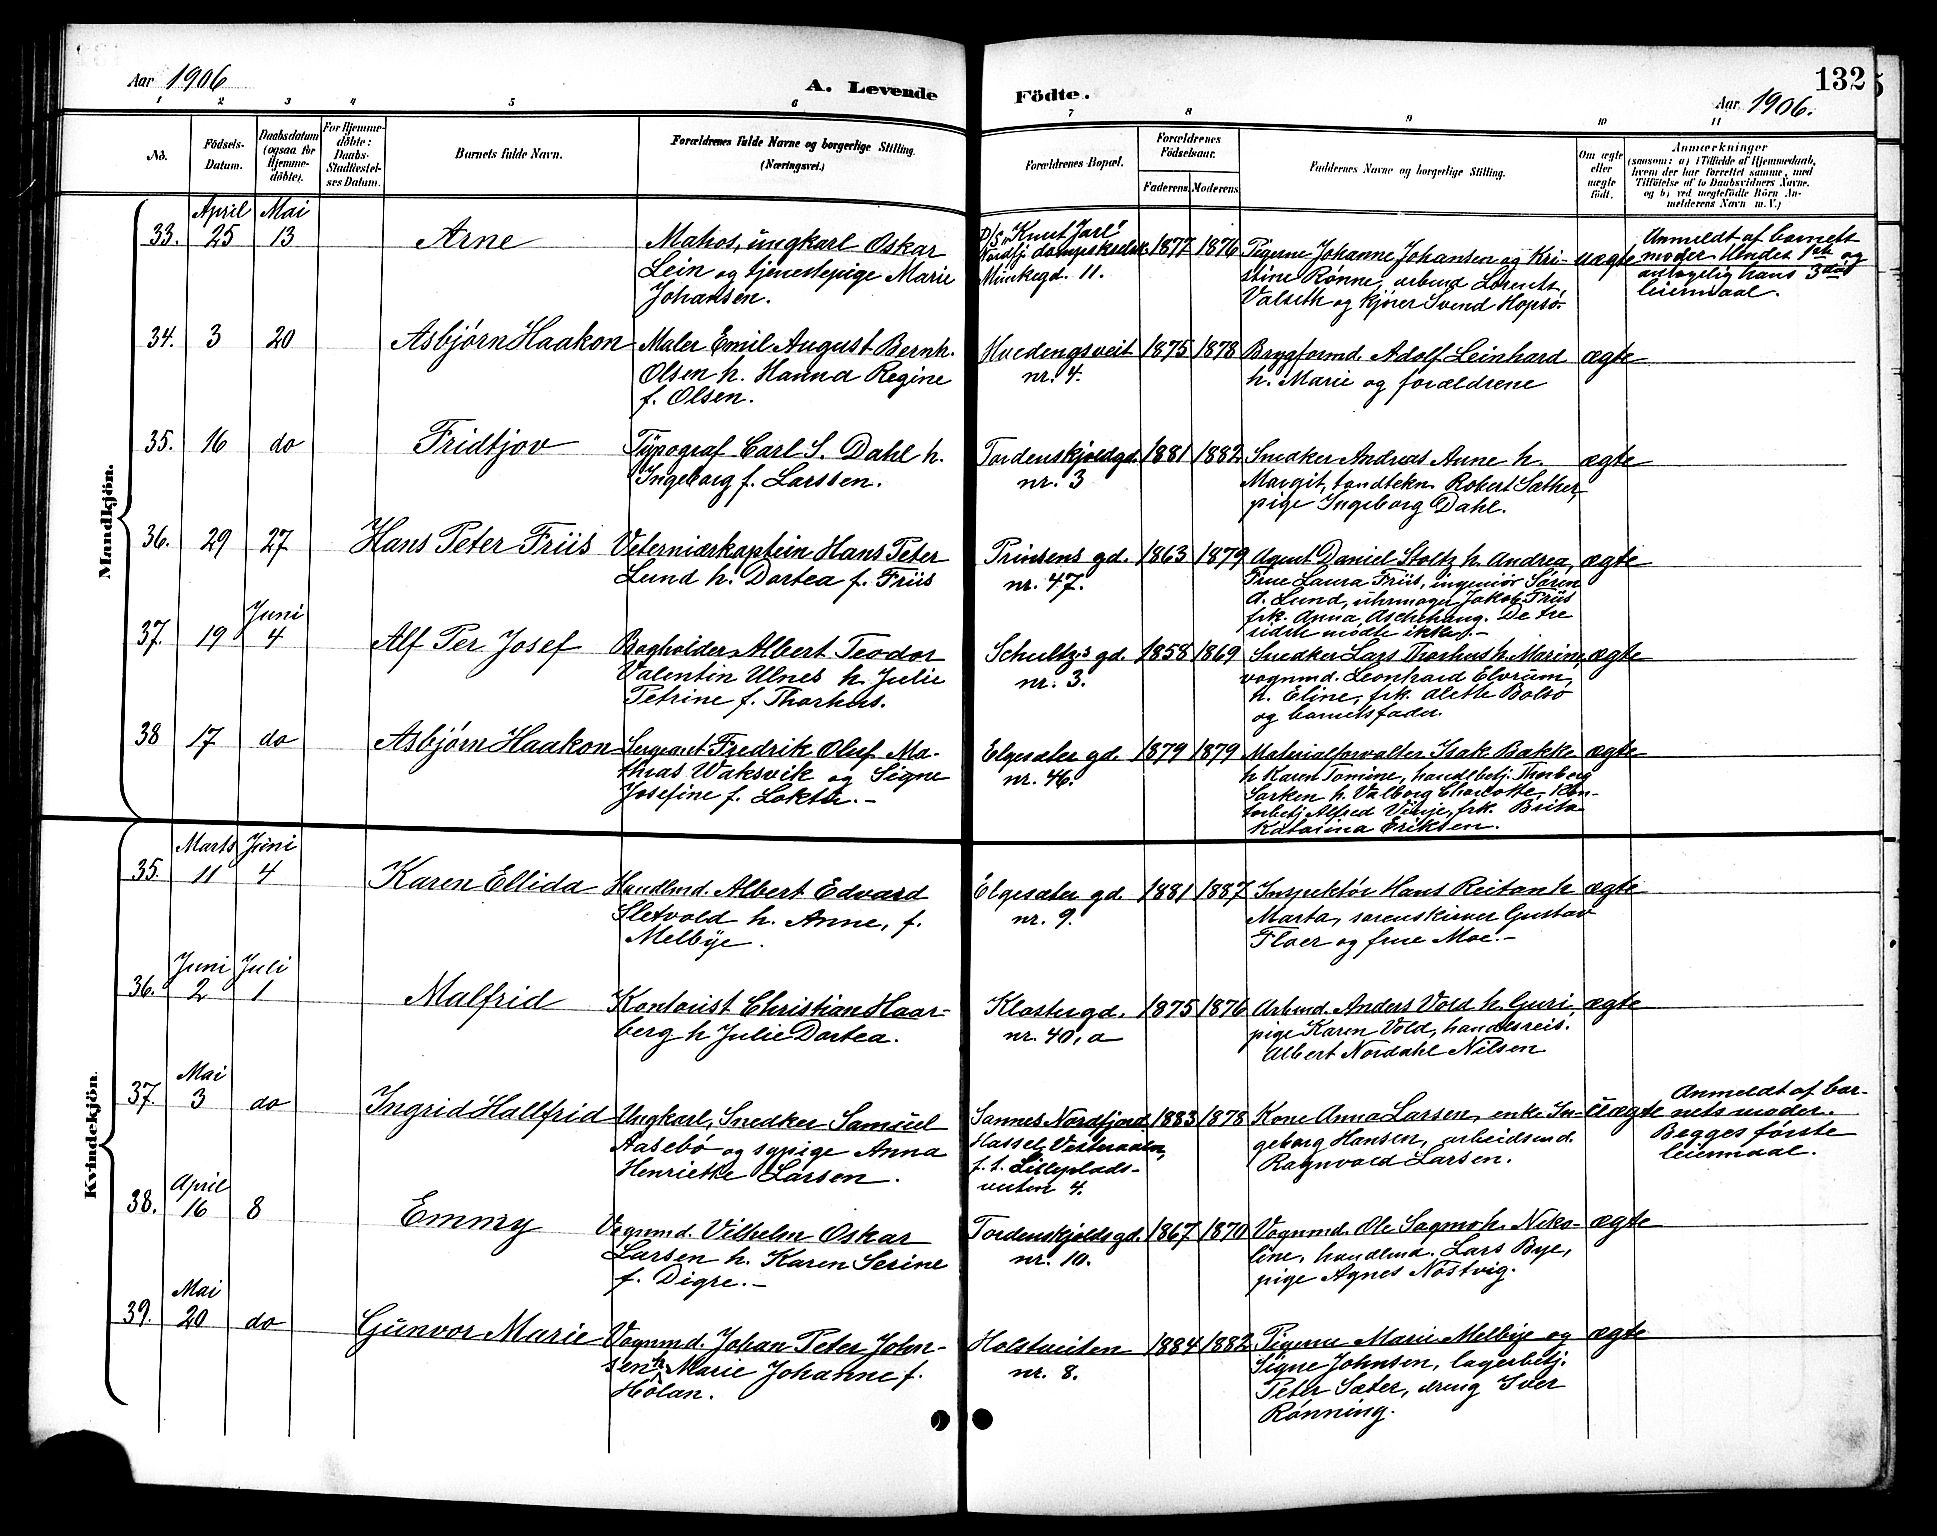 Aar 1906
A. Levende
Födte.
132
Aar 1906.
1 2 3 4 5 6 7 8 9 10 11
No.
Födsels-
Datum.
Daabsdatum
(ogsaa for
Hjemme-
döbte).
For Hjemme-
döbte:
Daabs-
Stadfæstel-
ses Datum.
Barnets fulde Navn.
Forældrenes fulde Navne og borgerlige Stilling.
(Næringsvei.)
Forældrenes Bopæl.
Forældrenes
Födselsaar.
Faderens. Moderens.
Faddernes Navne og borgerlige Stilling.
Om ægte
eller
uægte
födt.
Anmærkninger
(saasom: a) i Tilfælde af Hjemmedaab,
hvem der har forrettet samme, med
Tilföielse af to Daabsvidners Navne,
og b) ved uægtefödte Börn An-
melderens Navn m. V.)
Mandkjön.
April Mai
33. 25 13 Arne
Matros, ungkarl Oskar
Lein og tjenestepige Marie
Johansen.
D/S "Knut Jarl"
Nordfj. dampskselsk.
Munkegd. 11.
1877 1876
Pigerne Johanne Johansen og Kri-
stine Rønne, arbmd Lorents
Valseth og kjører Svend Hopsö.
uægte
Anmeldt af barnets
moder. Hendes 1ste og
antagelig hans 3die
leiermaal.
34. 3 20 Asbjørn Haakon
Maler Emil August Bernh.
Olsen h. Hanna Regine
f. Olsen.
Hvedingsveit
nr. 4.
1875 1878
Brygformd. Adolf Leinhard
h. Marie og forældrene
ægte
35. 16 do Fridtjov
Typograf Carl S. Dahl h.
Ingeborg f. Larssen.
Tordenskjoldgd.
nr. 3
1881 1882
Snedker Andreas Aune h.
Margit, tandtekn. Robert Sæther,
pige Ingeborg Dahl.
ægte
36. 29 27 Hans Peter Friis
Veterniærkaptein Hans Peter
Lund h. Dortea f. Friis
Prinsens gd.
nr. 47.
1863 1879
Agent Daniel Stoltz h. Andrea,
Frue Laura Friis, ingeniör Sören
A. Lund, uhrmager Jakob Friis
frk. Anna Aschehaug. De tre
sidste mødte ikke.-
ægte
Juni
37. 19 4 Alf Per Josef
Bogholder Albert Teodor
Valentin Ulnes h. Julie
Petrine f. Thorhus.
Schultz's gd.
nr. 3.
1858 1869
Snedker Lars Thorhus h. Marine,
vognmd. Leonhard Elvrum
h. Eline, frk. Alette Bolsö
og barnets fader.
ægte
38 17 do Asbjørn Haakon
Sergeant Fredrik Oluf Ma-
thias Waksvik og Signe
Josefine f. Loktu.-
Elgesæter gd.
nr. 46.
1879 1879
Materialforvalter Isak Bakke
h Karen Tomine, handlbetj. Thorberg
Larken h. Valborg Charlotte, Kon-
torbetj Alfred Vinje, frk. Brita
Katarina Eriksen.
ægte
Kvindekjön.
Marts Juni
35. 11 4 Karen Ellida
Handlmd. Albert Edvard
Sletvold h. Anne, f.
Melbÿe.
Elgesæter gd
nr. 9.
1881 1887
Inspektör Hans Reitan h
Marta, sorenskriver Gustav
Floer og frue Moe.-
ægte
Juni Juli
36. 2 1 Malfrid
Kontorist Christian Haar-
berg h Julie Dortea.
Klostergd.
nr. 40, a
1875 1876
Arbmd. Anders Vold h. Guri,
pige Karen Vold, handesreis.
Albert Nordahl Nilsen
ægte
Mai
37. 3 do Ingrid Hallfrid
Ungkarl, Snedker Samuel
Aasebö og sypige Anna
Henriette Larsen.
Sannes Nordfjord
Hassel, Vesteraalen,
f. t. Lilleplads-
veiten 4.
1883 1878
Kone Anna Larsen, enke In-
geborg Hansen, arbeidsmd.
Ragnvald Larsen.
uægte
Anmeldt af bar-
nets moder.
Begges første
leiermaal.
April
38. 16 8 Emmy
Vognmd. Vilhelm Oskar
Larsen h. Karen Serine
f. Digre.-
Tordenskjolds gd.
nr. 10.
1867 1870
Vognmd. Ole Sagmo h. Niko-
line, handlmd. Lars Bye,
pige Agnes Nöstvig.
ægte
Mai
39. 20 do Gunvor Marie
Vognmd. Johan Peter John-
sen h Marie Johanne f.
Hölan.
Holstveiten
nr. 8.
1884 1882
Pigerne Marie Melbÿe og
Signe Johnsen, lagerbetj.
Peter Sæter, dreng Iver
Rønning.
ægte